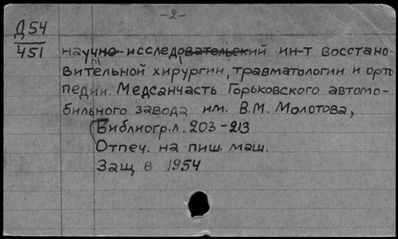 -2-
Д54
451
научно-исследовательский ин-т восстано-
вительной хирургии, травматологии и орто
педии. Медсанчасть Горьковского автомо-
бильного завода им. В.М. Молотова,
Библиогр.л. 203-213
Отпеч. на пиш. маш.
Защ в 1954